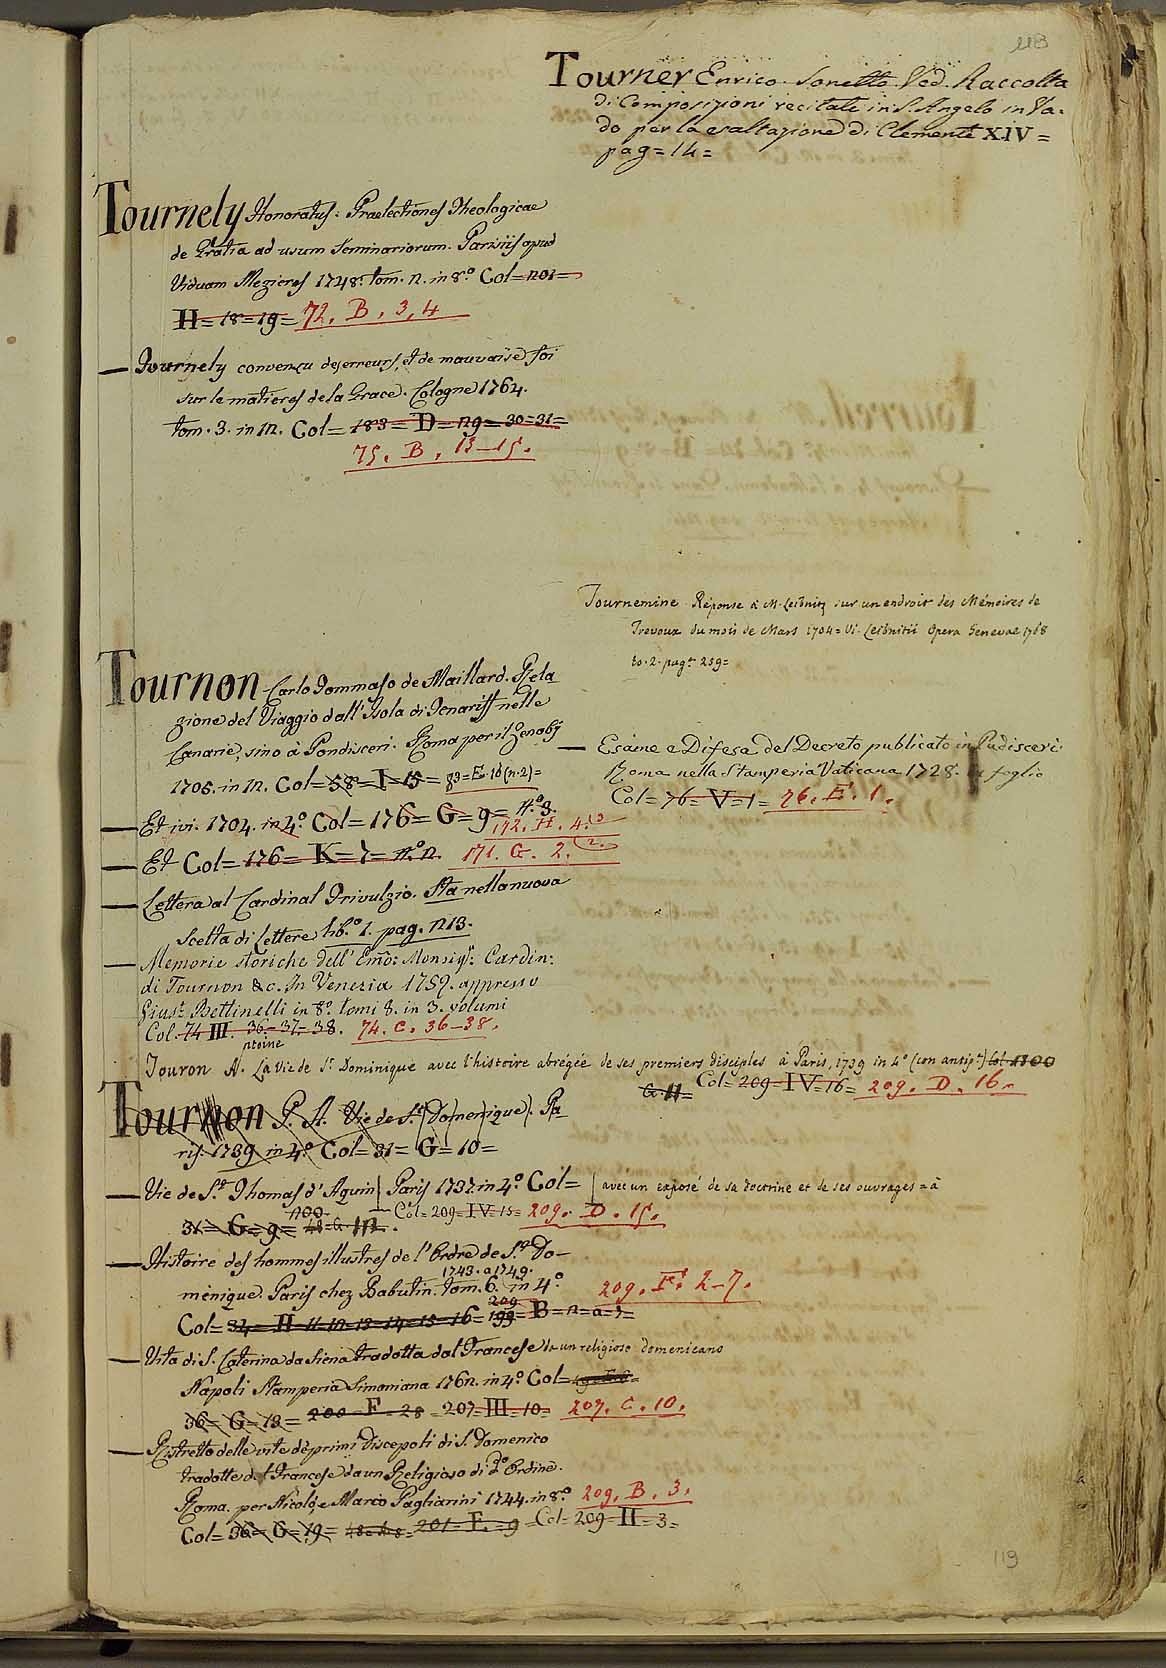 113
Tourner Enrico Sonetto. Ved. Raccolta
di Composizioni recitate in S. Angelo in Va-
do per la esaltazione di Clemente XIV =
pag = 14 =
Tournely Honoratus. Praelectiones Theologicae
de Gratia ad usum Seminariorum. Parisiis apud
Viduam Mezieres 1748. tom. 2. in 8.º Col = 201 =
H = 18 = 19 = 72. B. 3, 4
— Tournely convençu des erreurs, et de mauvaise foi
sur le matieres de la Grace. Cologne 1764.
tom. 3. in 12. Col = 183 = D = 29 = 30 = 31 =
75. B. 13–15.
Tournemine Réponse à M. Leibnitz sur un endroit des Mémoires de
Trevoux du mois de Mars 1704 = Vi. Leibnitii Opera Genevae 1768
to. 2. pag. 259 =
Tournon Carlo Tommaso de Maillard. Rela-
zione del Viaggio dall' Isola di Tenariff nelle
Canarie, sino à Pondisceri. Roma per il Zenobj
1705. in 12. Col = 58 = I = 15 = 83 = E. 16 (n. 2) =
— Et ivi. 1704. in 4.º Col = 176 = G = 9 = N.º 3.
172. H. 4. 3
— Et Col = 176 = K = 7 = N.º 2. 171. G. 2. 2.
— Lettera al Cardinal Trivulzio. Sta nella nuova
Scelta di Lettere lib.º 1. pag. 213.
— Memorie storiche dell' Emo: Monsigr: Cardin:
di Tournon &c. In Venezia 1759. appresso
Gius. Bettinelli in 8.º tomi 8. in 3. volumi
Col. 74 III. 36–37–38. 74. C. 36–38.
— Esame e Difesa del Decreto publicato in Pudisceri
Roma nella Stamperia Vaticana 1728. in foglio
Col = 76 = V = 1 = 76. E. 1.
ntoine
Touron A. La Vie de St Dominique avec l'histoire abrégée de ses premiers disciples à Paris, 1739 in 4º (con antip.) Col. 1200
G. 11 = Col = 209 = IV = 16 = 209. D. 16.
Tournon P. A. Vie de St. Domenique. Pa-
ris. 1739 in 4º Col = 31 = G = 10 =
— Vie de St. Thomas d'Aquin Paris 1737. in 4º Col = avec un exposé de sa doctrine et de ses ouvrages = à
31 = G = 9 = Col = 209 = IV = 15 = 209. D. 15.
— Histoire des hommes illustres de l'Ordre de St. Do-
1743. a 1749.
menique. Paris chez Babutin. tom. 6. in 4º 209. F. 2–7.
209
Col = 34 = H = 11 = 12 = 13 = 14 = 15 = 16 = 199 = B = 2 = a = 7 =
— Vita di S. Caterina da Siena tradotta dal Francese da un religioso domenicano
Napoli Stamperia Simoniana 1762. in 4º Col =
36 = G = 13 = 200 = F = 28 = 207 = III = 10 = 207. C. 10.
— Ristretto delle vite dè primi Discepoli di S. Domenico
tradotte dal Francese da un Religioso di do Ordine.
Roma. per Nicolò, e Marco Pagliarini 1744. in 8º 209. B. 3.
Col = 36 = G = 19 = 201 = F. = 9 = Col = 209 = II = 3 =
119